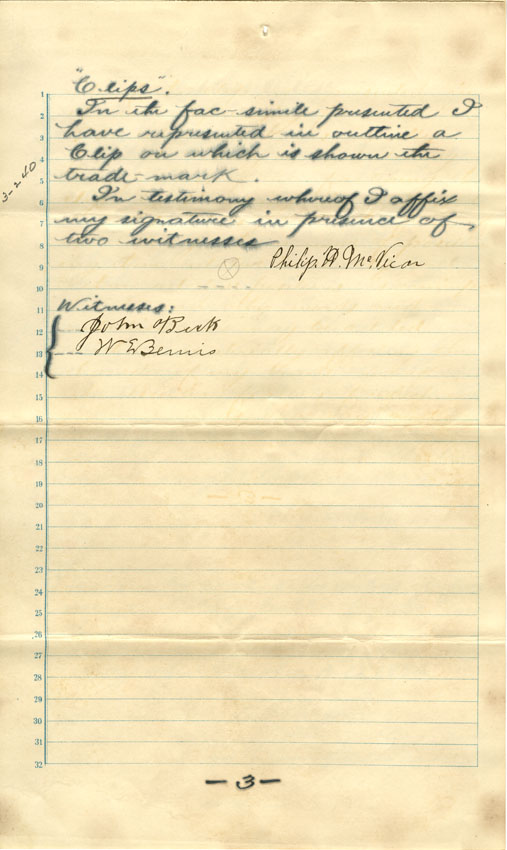 "Clips".
1
In the fac-simile presented I
2
have represented in outline a
3
Clip on which is shown the
4
trade-mark.
5
3-240
In testimony whereof I affix
6
my signature in presence of
7
two witnesses
8
Philip H. McVicar
9
10
Witnesses:
11
John Birk
12
W E Bemis
13
14
15
16
17
18
19
20
21
22
23
24
25
26
27
28
29
30
31
32
- 3 -